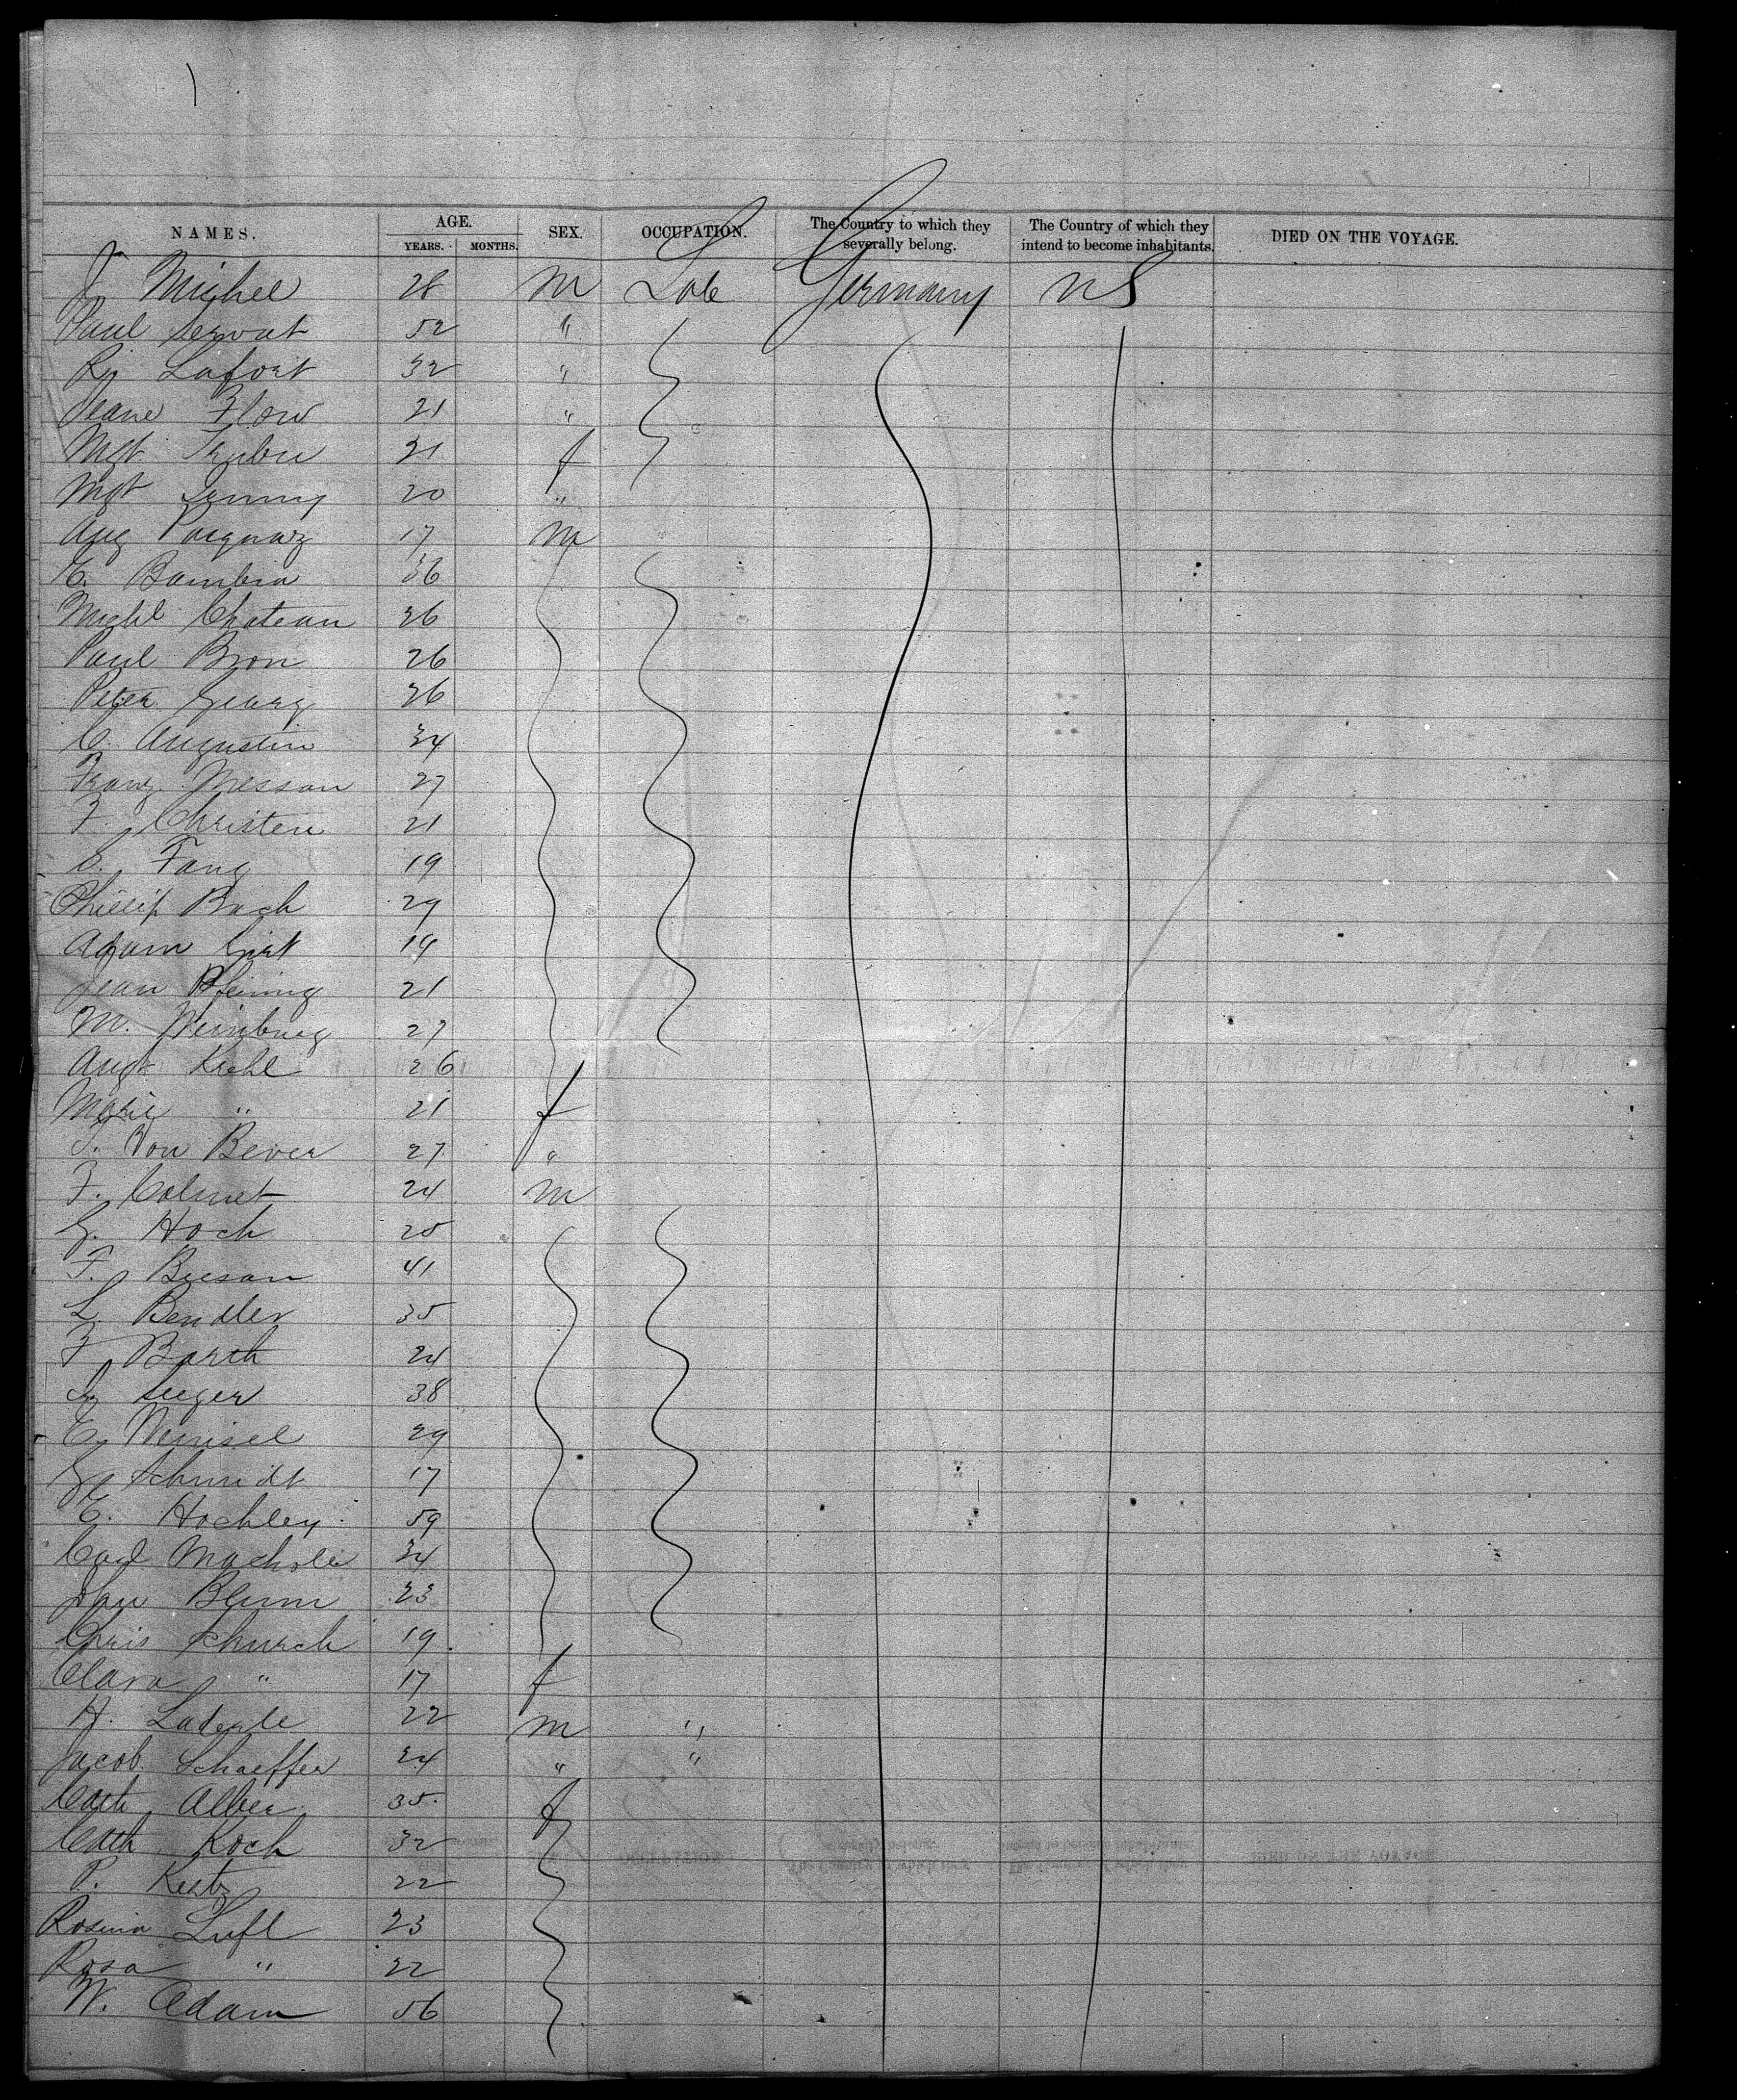 NAMES. AGE. YEARS. MONTHS. SEX. OCCUPATION. The Country to which they severally belong. The Country of which they intend to become inhabitants. DIED ON THE VOYAGE.
J Michel 28 M Lab Germany US
Paul Servat 52 "
Lafort 32 "
Jeane Flow 21 "
Mgt 21 f
Mgt Jenny 20 "
Aug 17 M
E. Bambia 36
Michl Chateau 26
Paul Bron 26
Peter Georg 26
C. Augustin 34
Franz Messon 27
F. Christen 21
S. Fang 19
Phillip Bach 29
Adam Girt 19
Jean Pfening 21
M. Weinburg 27
Augt Kiehl 26
Marie " 21 f
S. Von Bever 27 "
F. Colmet 24 M
G. Hoch 25
F. Bueson 41
L. Bendler 35
F. Barth 24
Seeger 38
E. 29
G. Schmidt 17
E. Hochley 59
Carl Machsler 34
John Blum 23
Chris Schurch 19
Clara " 17 f
H. Laderle 22 M "
Jacob Schaeffer 24 " "
Cath Alber 35 f
Cath Koch 32
P. 22
Rosina Lufl 23
Rosa " 22
W. Adam 56